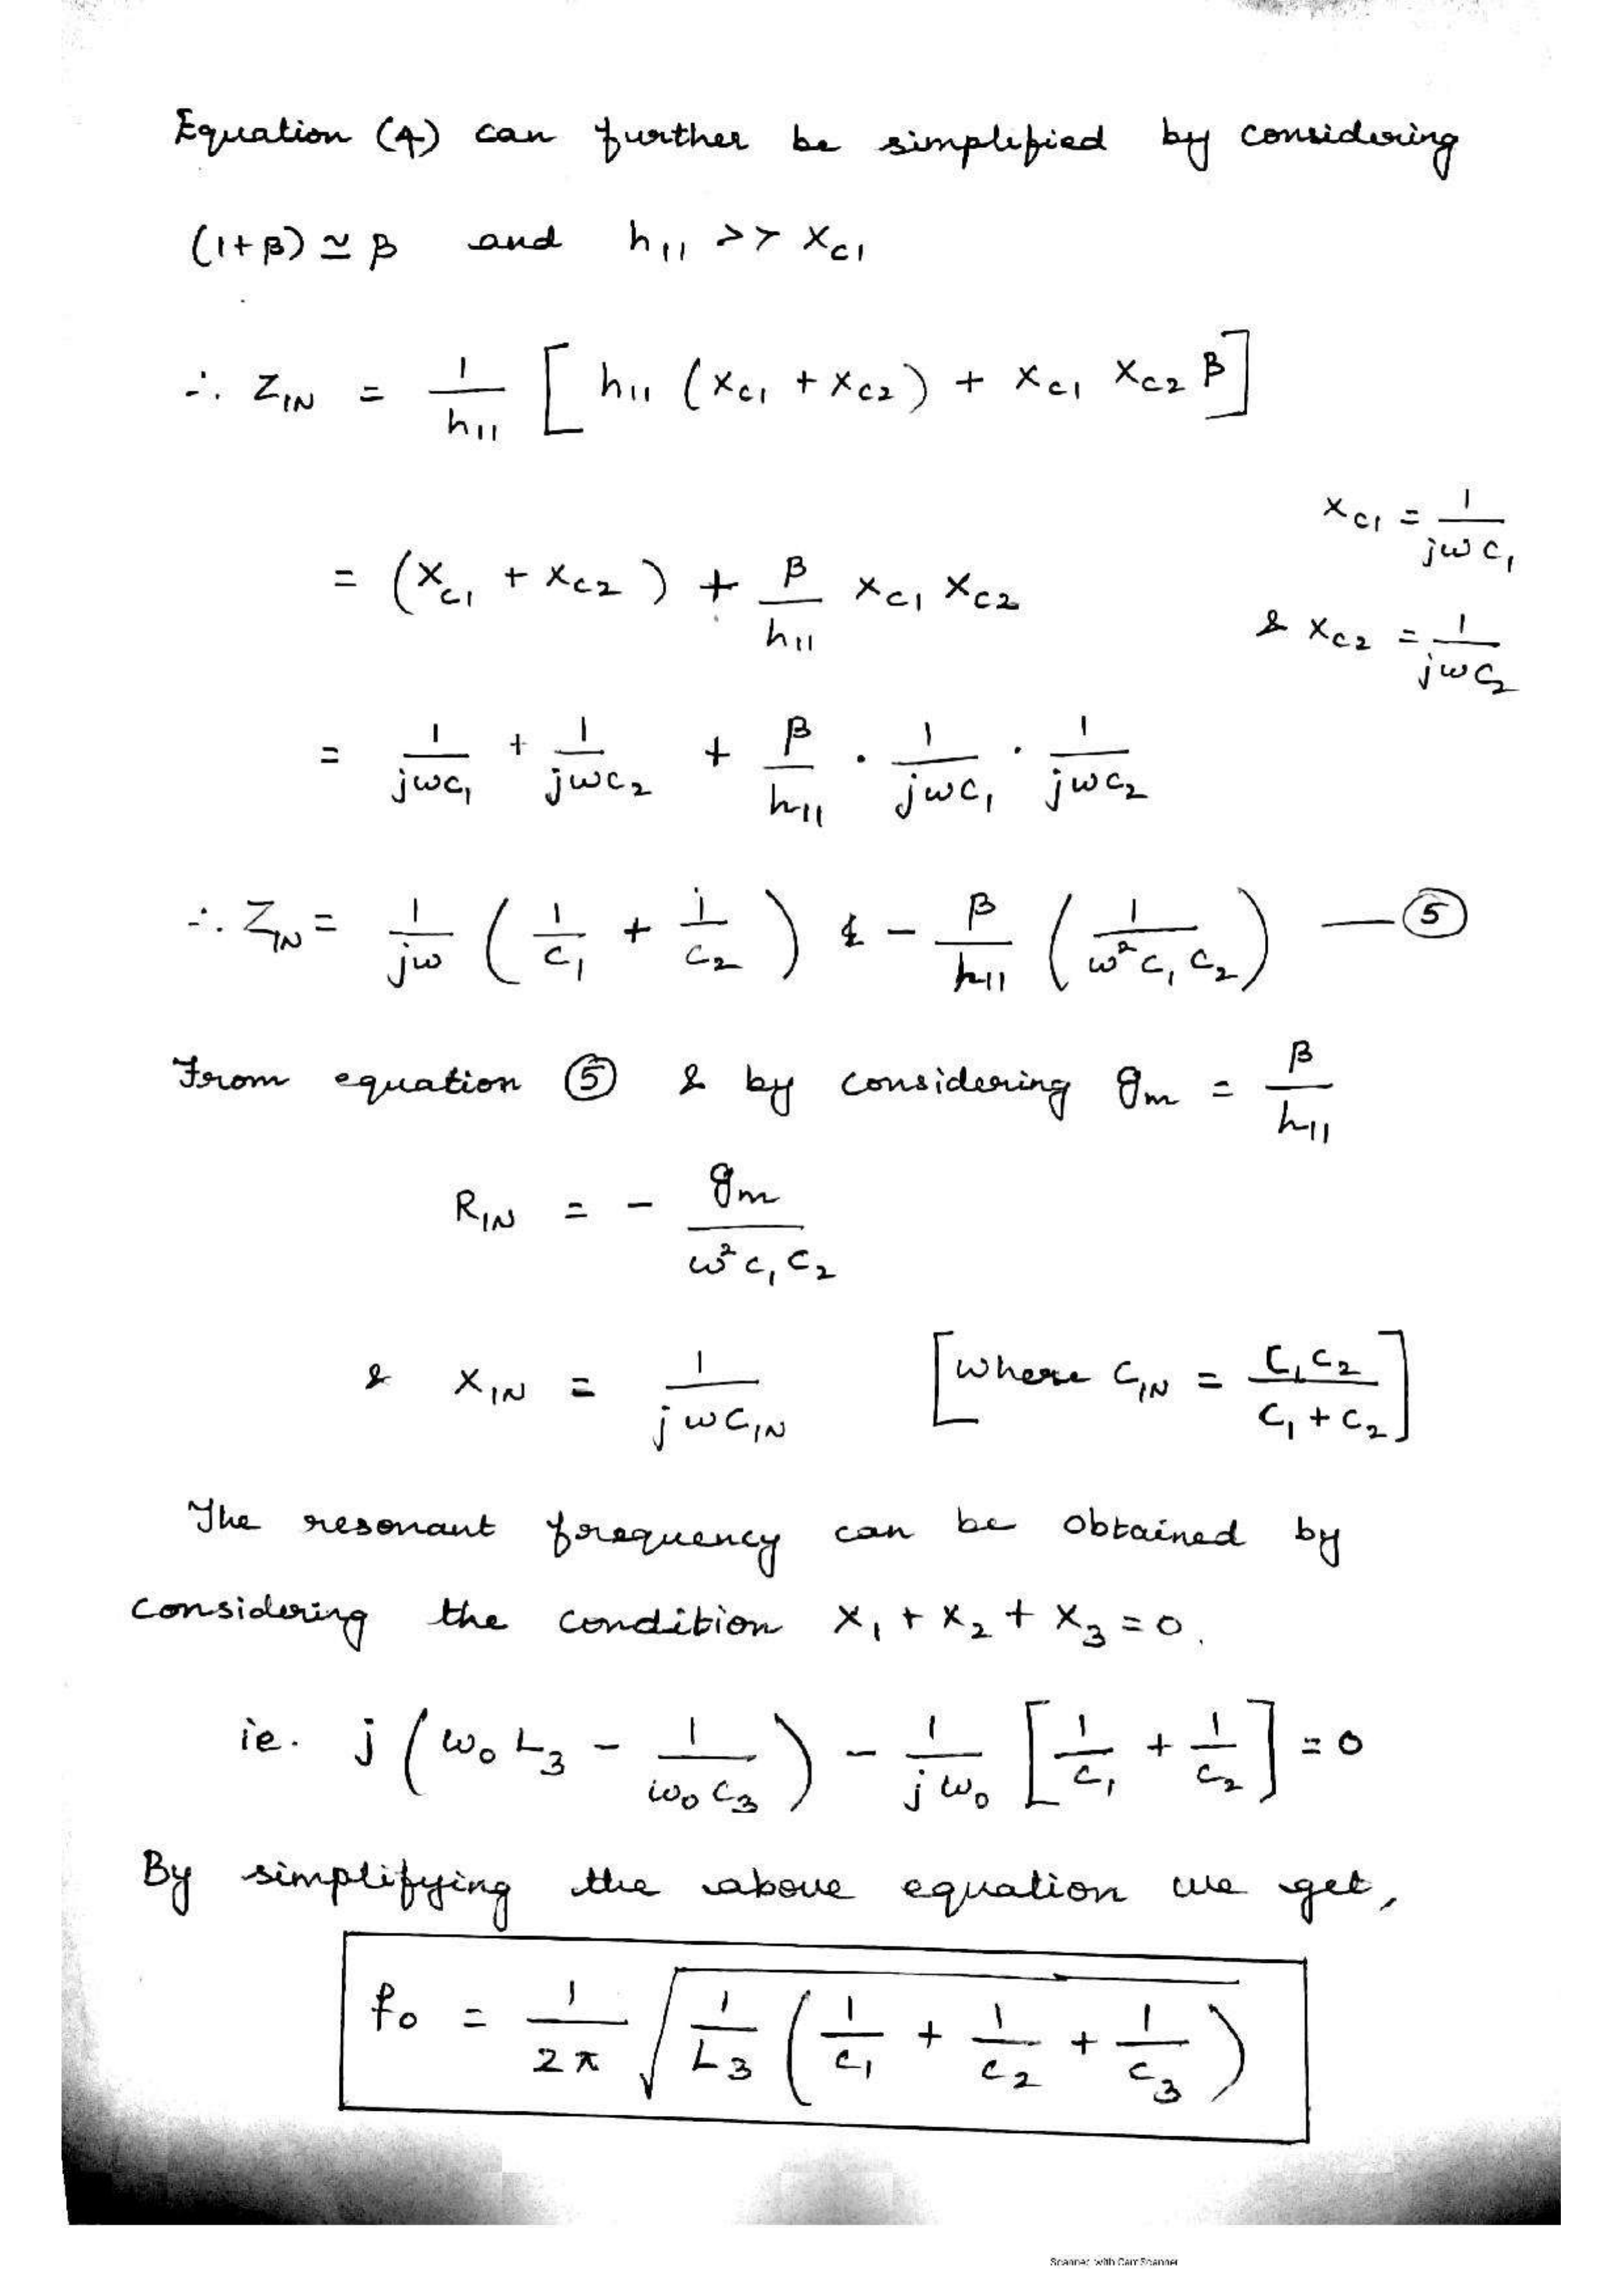 Equation (4) can further be simplified by considering
(1+β) ≃ β and h₁₁ >> X_C1
∴ Z_IN = 1/h₁₁ [ h₁₁ (X_C1 + X_C2) + X_C1 X_C2 β ]
X_C1 = 1/jωC₁
= (X_C1 + X_C2) + β/h₁₁ X_C1 X_C2
& X_C2 = 1/jωC₂
= 1/jωC₁ + 1/jωC₂ + β/h₁₁ · 1/jωC₁ · 1/jωC₂
∴ Z_IN = 1/jω ( 1/C₁ + 1/C₂ ) - β/h₁₁ ( 1/ω²C₁C₂ ) — ⑤
From equation ⑤ & by considering g_m = β/h₁₁
R_IN = - g_m/ω²C₁C₂
& X_IN = 1/jωC_IN [where C_IN = C₁C₂/C₁+C₂]
The resonant frequency can be obtained by
considering the condition X₁ + X₂ + X₃ = 0.
ie. j ( ω₀L₃ - 1/ω₀C₃ ) - 1/jω₀ [ 1/C₁ + 1/C₂ ] = 0
By simplifying the above equation we get,
f₀ = 1/2π √ 1/L₃ ( 1/C₁ + 1/C₂ + 1/C₃ )
Scanned with CamScanner